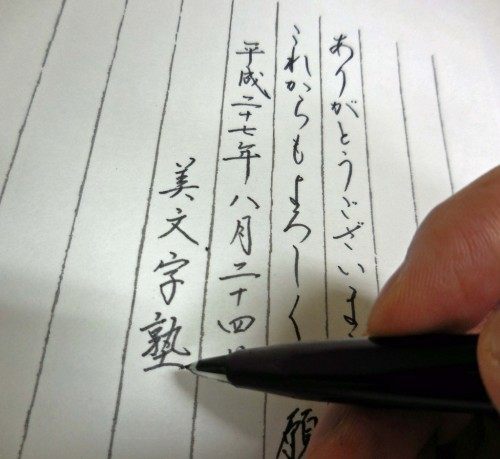 ありがとうございま
これからもよろしく 願
平成二十七年八月二十四
美文字塾